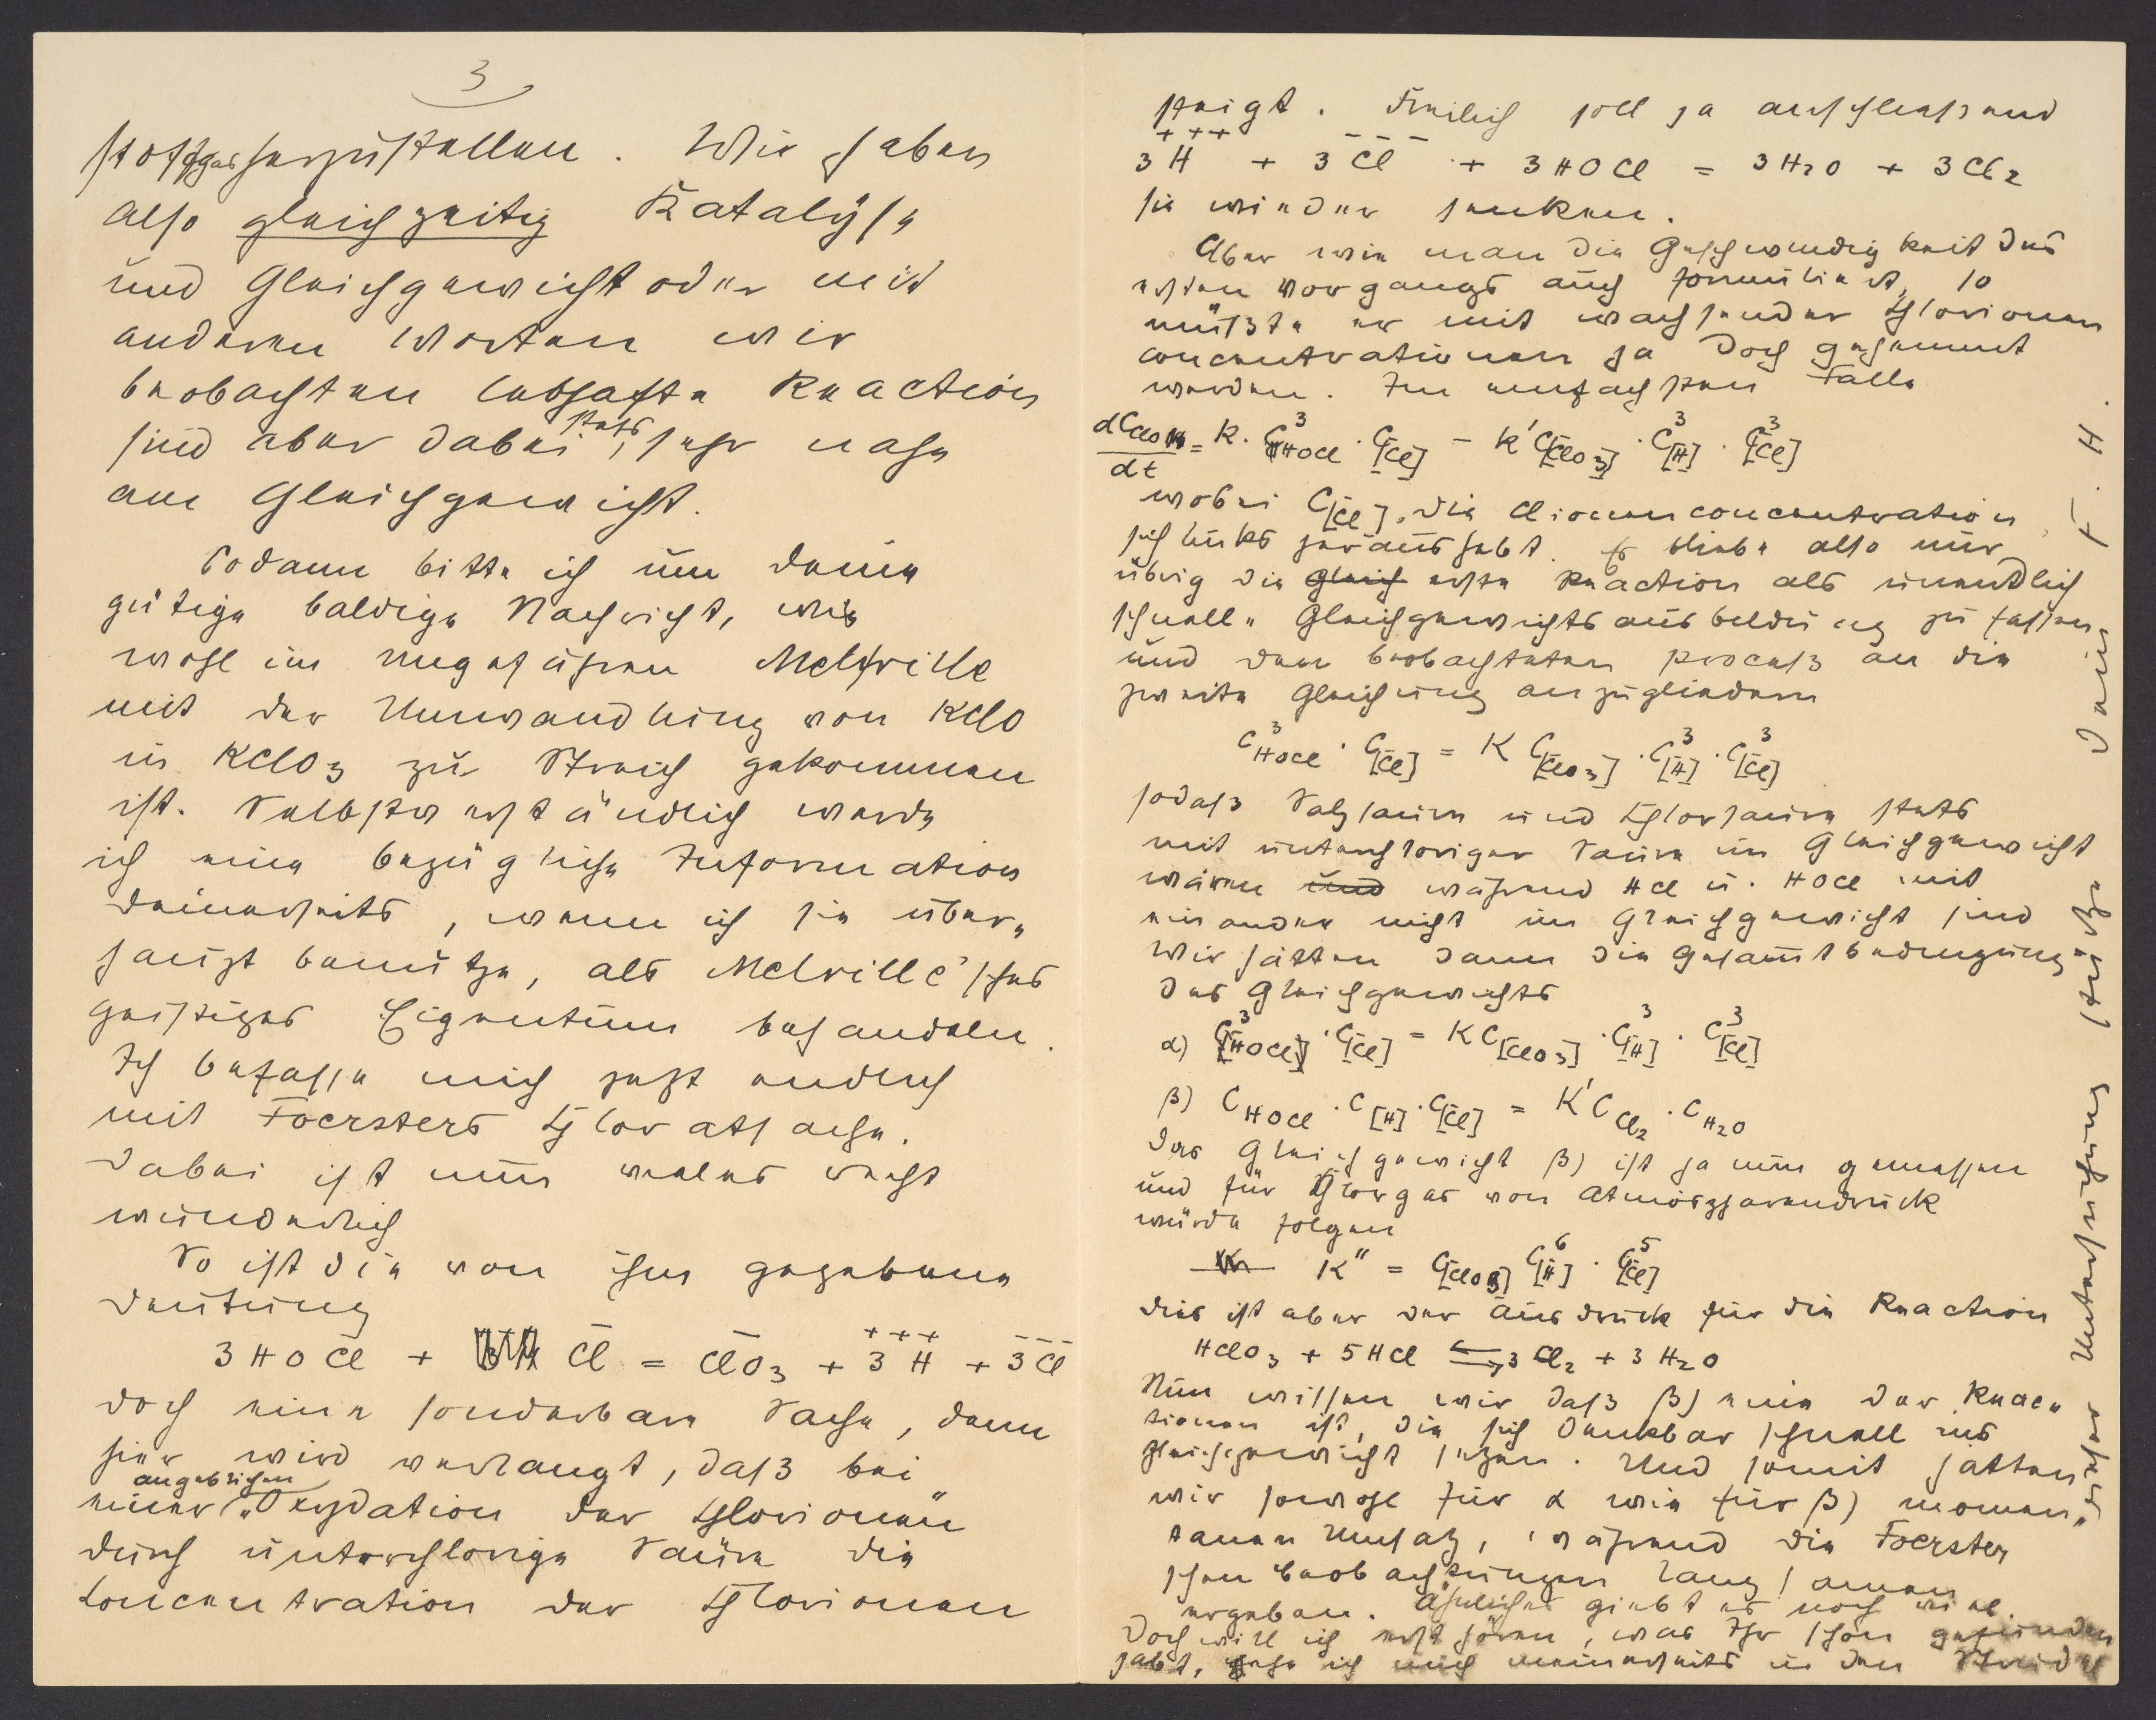 3
stoffgas herzustellen. Wir haben
also gleichzeitig Katalyse
und Gleichgewicht oder mit
anderen Worten wir
beobachten lebhafte Reaction
sind aber dabei stets sehr nahe
am Gleichgewicht.
Sodann bitte ich um Deine
gütige baldige Nachricht, wie
wohl im ungefähren Melville
mit der Umwandlung von KClO
in KClO3 zu Streich gekommen
ist. Selbstverständlich werde
ich eine bezügliche Information
Deinerseits, wenn ich sie über„
haupt benutze, als Melville'sches
geistiges Eigentum behandeln.
Ich befasse mich jetzt endlich
mit Foersters Chloratsache.
Dabei ist nun vieles recht
wunderlich
So ist die von ihm gegebene
Deutung
3 HOCl + C̄l = C̄lO3 + 3 H⁺⁺⁺ + 3 Cl⁻⁻⁻
doch eine sonderbare Sache, denn
hier wird verlangt, daß bei
einer angeblichen „Oxydation der Chlorionen“
durch unterchlorige Säure die
Concentration der Chlorionen
steigt. Freilich soll ja anschließend
3 H⁺⁺⁺ + 3 Cl⁻⁻⁻ + 3 HOCl = 3 H2O + 3 Cl2
sie wieder senken.
Aber wie man die Geschwindigkeit des
ersten Vorgangs auch formuliert, so
müßte er mit wachsender Chlorionen
concentrationen ja doch gehemmt
werden. Im einfachsten Falle
dC ClO3/dt = K · C³HOCl · C[C̄l] − K' C[C̄lO3] · C³[H] · C³[C̄l]
wobei C[C̄l] die Clionenconcentration
sich links heraushebt. Es bliebe also nur
übrig die Gleich erste Reaction als unendlich
schnelle Gleichgewichtsausbildung zu fassen
und den beobachteten Process an die
zweite Gleichung anzugliedern
C³HOCl · C[C̄l] = K C[C̄lO3] · C³[H] · C³[C̄l]
sodaß Salzsäure und Chlorsäure stets
mit unterchloriger Säure im Gleichgewicht
wären und während HCl u. HOCl mit
einander nicht im Gleichgewicht sind
Wir hätten dann die Gesamtbedingung
des Gleichgewichts
α) C³[HOCl] · C[C̄l] = K C[C̄lO3] · C³[H] · C³[C̄l]
β) C HOCl · C[H] · C[C̄l] = K' C Cl2 · C H2O
Das Gleichgewicht β) ist ja nun gemessen
und für Chlorgas von Atmosphärendruck
würde folgen
K" = C[ClO3] C⁶[H] · C⁵[C̄l]
Dies ist aber der Ausdruck für die Reaction
HClO3 + 5 HCl ⇆ 3 Cl2 + 3 H2O
Nun wissen wir daß β) eine der Reac„
tionen ist, die sich denkbar schnell ins
Gleichgewicht setzen. Und somit hätten
wir sowohl für α wie für β) momen„
tanen Umsatz, während die Foerster
schen Beobachtungen langsamen
ergeben. Ähnliches giebt es noch viel.
Doch will ich erst hören, was Ihr schon gefunden
habt, ehe ich mich meinerseits in den Strudel
dieser Untersuchung stürze. Dein F. H.